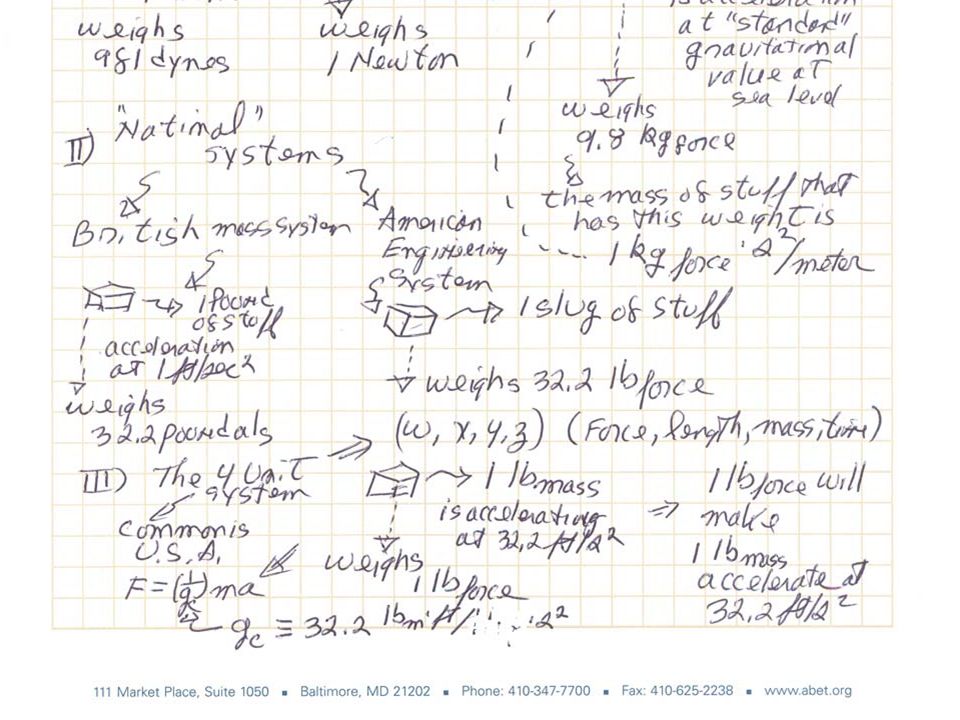 weighs
981 dynes
weighs
1 Newton
at "standard"
gravitational
value at
sea level
weighs
9.8 kg force
the mass of stuff that
has this weight is
1 kg force · s²/meter
II) "Natinal"
systems
British mass system
American
Engineering
System
1 Pound
of stuff
acceleration
at 1 ft/sec²
weighs
32.2 poundals
1 slug of stuff
weighs 32.2 lb force
(w, x, y, z) (Force, length, mass, time)
III) The 4 Unit
system
common is
U.S.A.
F = (1/gc) ma
1 lb mass
is accelerating
at 32.2 ft/s²
weighs
1 lb force
1 lb force will
make
1 lb mass
accelerate at
32.2 ft/s²
gc ≡ 32.2 lbm ft/ s²
111 Market Place, Suite 1050 ▪ Baltimore, MD 21202 ▪ Phone: 410-347-7700 ▪ Fax: 410-625-2238 ▪ www.abet.org